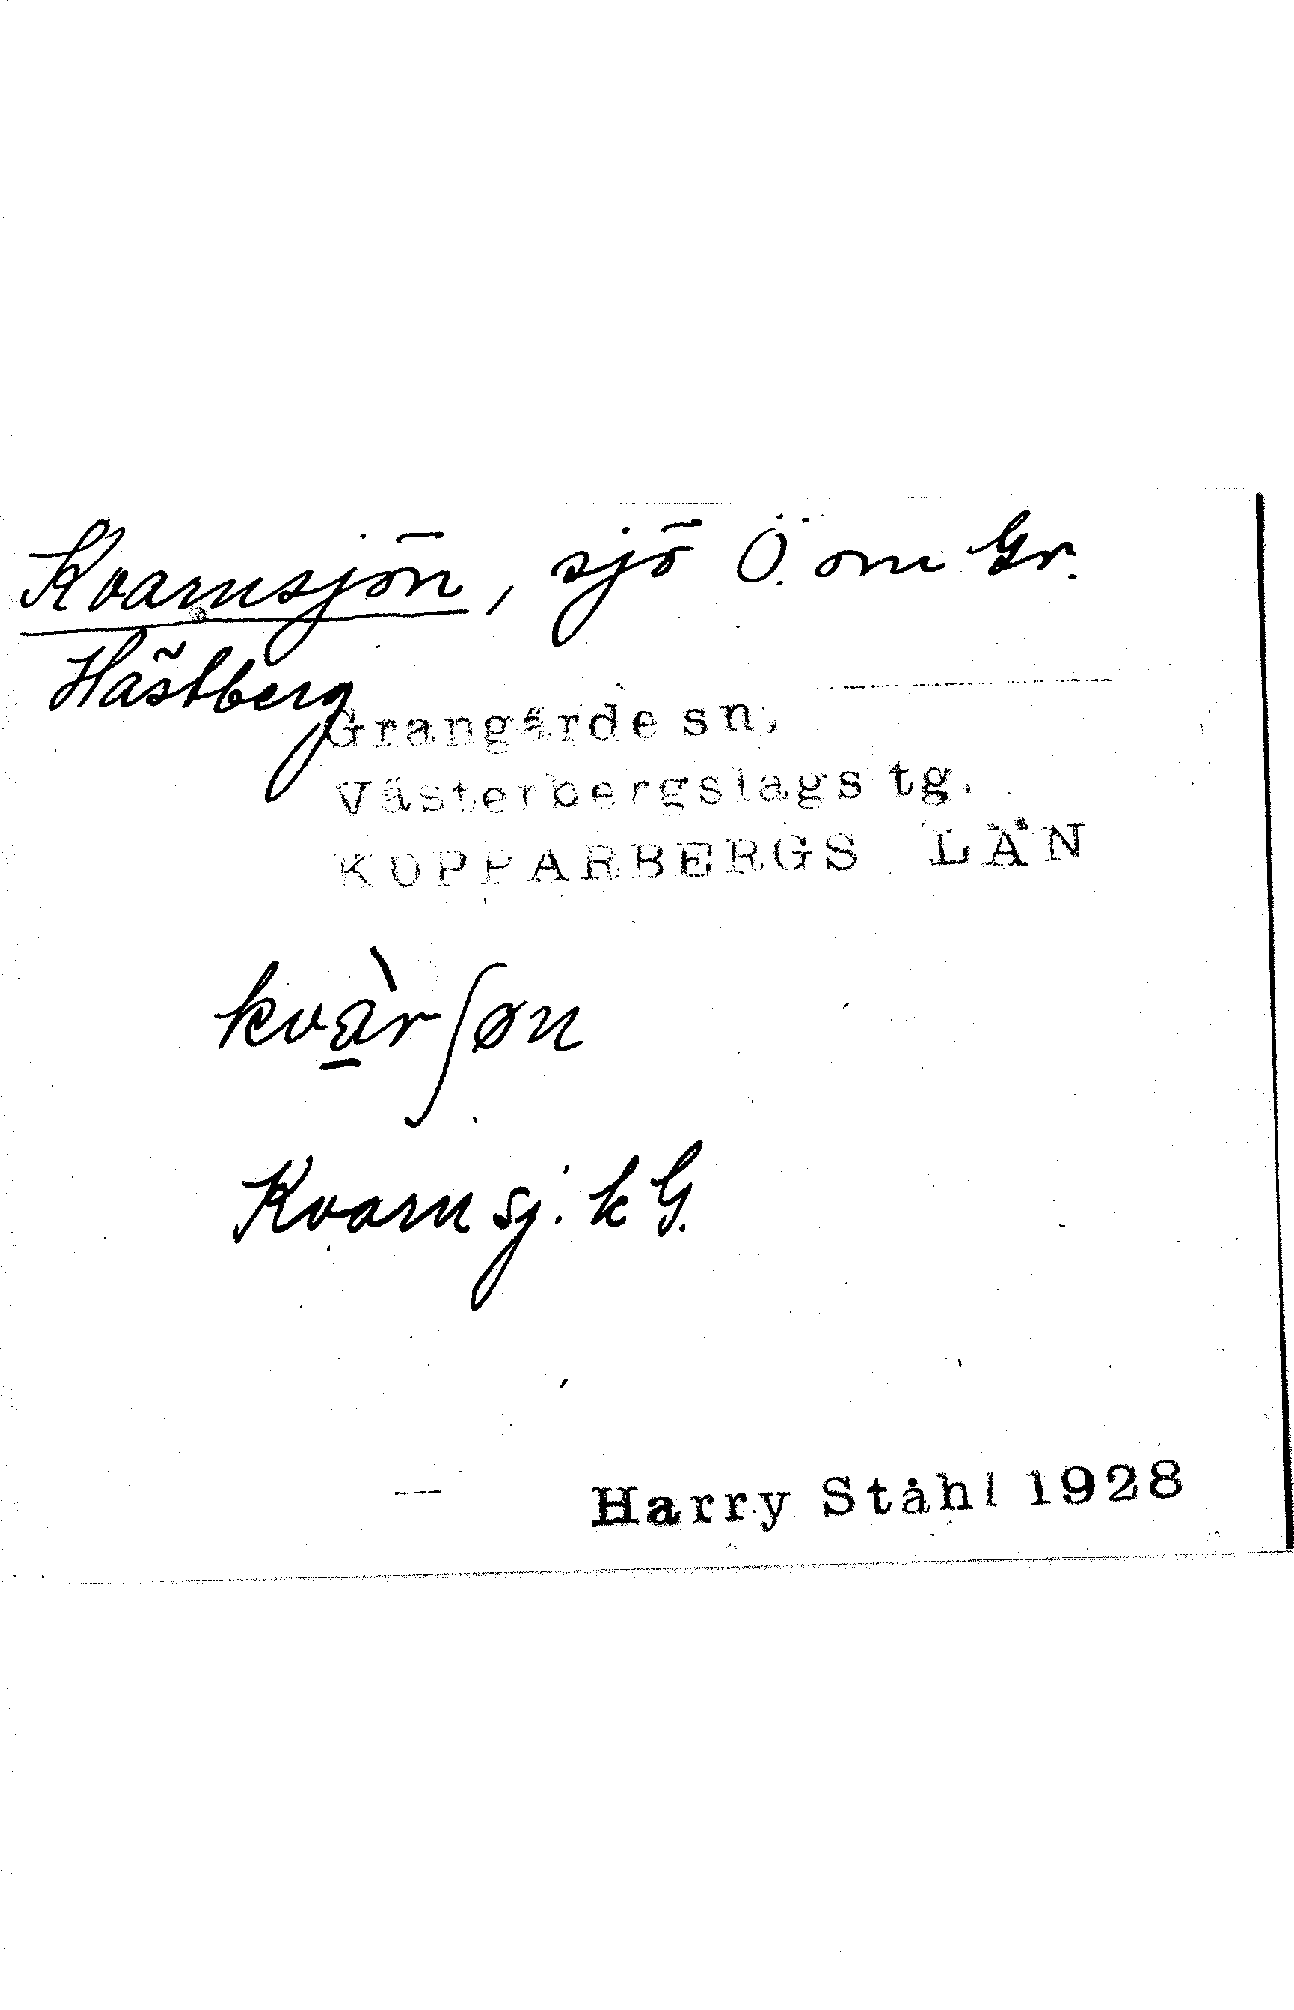 Kvarnsjön, sjö Ö. om Gr.
Hästberg
Grangärde sn,
Västerbergslags tg.
KOPPARBERGS LÄN
kvà̱rʃøn
Kvarnsj. k G.
Harry Ståhl 1928